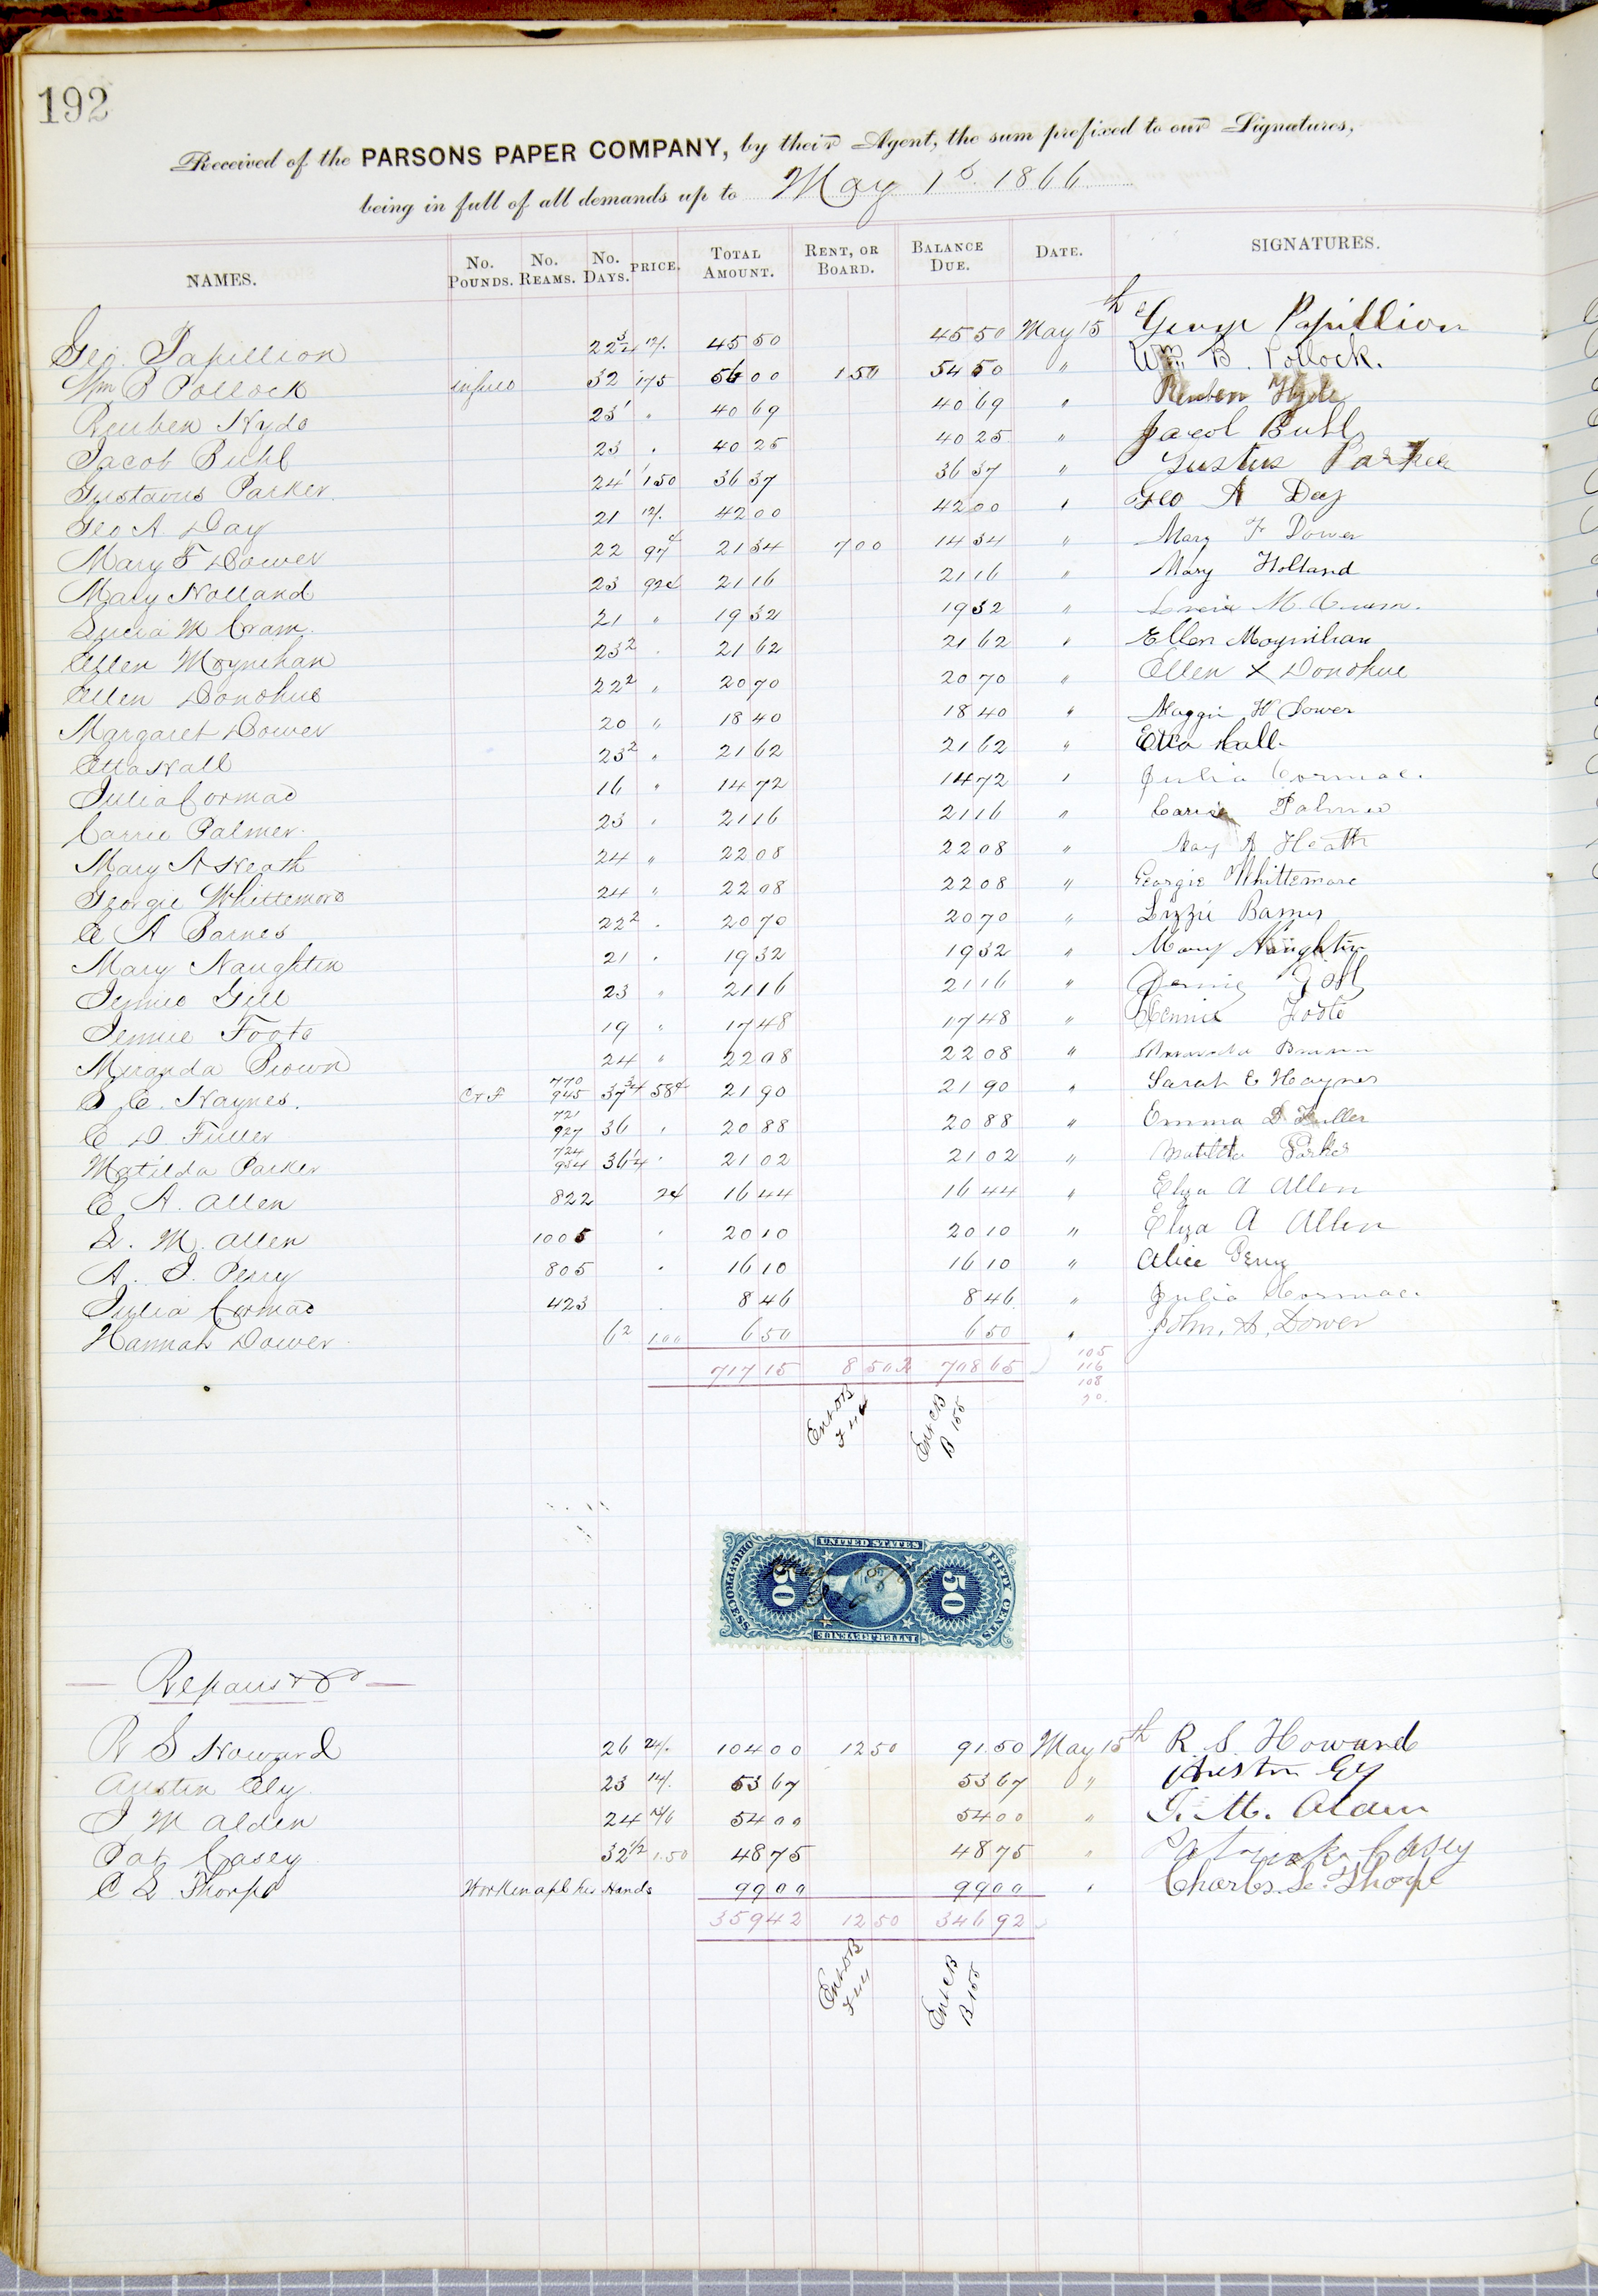 192
Received of the PARSONS PAPER COMPANY, by their Agent, the sum prefixed to our Signatures,
being in full of all demands up to May 1st. 1866.
NAMES. No. Pounds. No. Reams. No. Days. PRICE. Total Amount. Rent, or Board. Balance Due. Date. SIGNATURES.
Geo. Papillion 22 3/4 12/. 45 50 45 50 May 15th George Papillion
Wm B Pollock 32 175 56 00 1 50 54 50 " Wm B. Pollock.
Reuben Hyde 23 1 " 40 69 40 69 " Reuben Hyde
Jacob Buhl 23 " 40 25 40 25 " Jacob Buhl
Gustavus Parker. 24 1 150 36 37 36 37 " Gustus Parker
Geo A Day 21 12/. 42 00 42 00 " Geo A Day
Mary F Dower 22 97¢ 21 34 7 00 14 34 " Mary F Dower
Mary Holland 23 92¢ 21 16 21 16 " Mary Holland
Lucia M Cram. 21 " 19 32 19 32 " M. Cram.
Ellen Moynihan 23 2 " 21 62 21 62 " Ellen Moynihan
Ellen Donohue 22 2 " 20 70 20 70 " Ellen X Donohue
Margaret Dower 20 " 18 40 18 40 " Maggie H Dower
Etta Hall 23 2 " 21 62 21 62 " Etta Hall
Julia Cormac 16 " 14 72 14 72 " Julia Cormac.
Carrie Palmer. 23 " 21 16 21 16 " Carrie Palmer
Mary A Heath 24 " 22 08 22 08 " Mary A Heath
Georgie Whittemore 24 " 22 08 22 08 " Georgie Whittemore
E A Barnes 22 2 " 20 70 20 70 " Lizzie Barnes
Mary Naughtin 21 " 19 32 19 32 " Mary Naughtin
Jennie Gill 23 " 21 16 21 16 " Jennie Gill
Jennie Foote 19 " 17 48 17 48 " Jennie Foote
Miranda Brown 24 " 22 08 22 08 " Miranda Brown
S. E. Haynes. C & F 770 945 37 3/4 58¢ 21 90 21 90 " Sarah E Haynes
E D Fuller 721 927 36 " 20 88 20 88 " Emma D Fuller
Matilda Parker 724 934 36 1/4 " 21 02 21 02 " Matilda Parker
E. A. Allen 822 2¢ 16 44 16 44 " Eliza A Allen
L. M. Allen 1005 " 20 10 20 10 " Eliza A Allen
A. J. Perry 805 " 16 10 16 10 " Alice Perry
Julia Cormac 423 8 46 8 46 " Julia Cormac.
Hannah Dower. 6 2 1 00 6 50 6 50 " John. A. Dower
717 15 8 50 708 65
105
116
108
20.
Ent DB
Ent CB
B 155
UNITED STATES
ORIG. PROCESS 50 50 FIFTY CENTS
INTER. REVENUE
Repairs &c
R S Howard 26 24/. 104 00 12 50 91.50 May 15th R. S. Howard
Austin Ely 23 14/. 53 67 53 67 " Austin Ely
J M Alden 24 54 00 54 00 " J. M. Alden
Pat Casey 32 1/2 1.50 48 75 48 75 " Patrick Casey
C L Thorpe Hands 99 00 99 00 " Charles. L. Thorpe
359 42 12 50 346 92
Ent DB
Ent CB
B 155